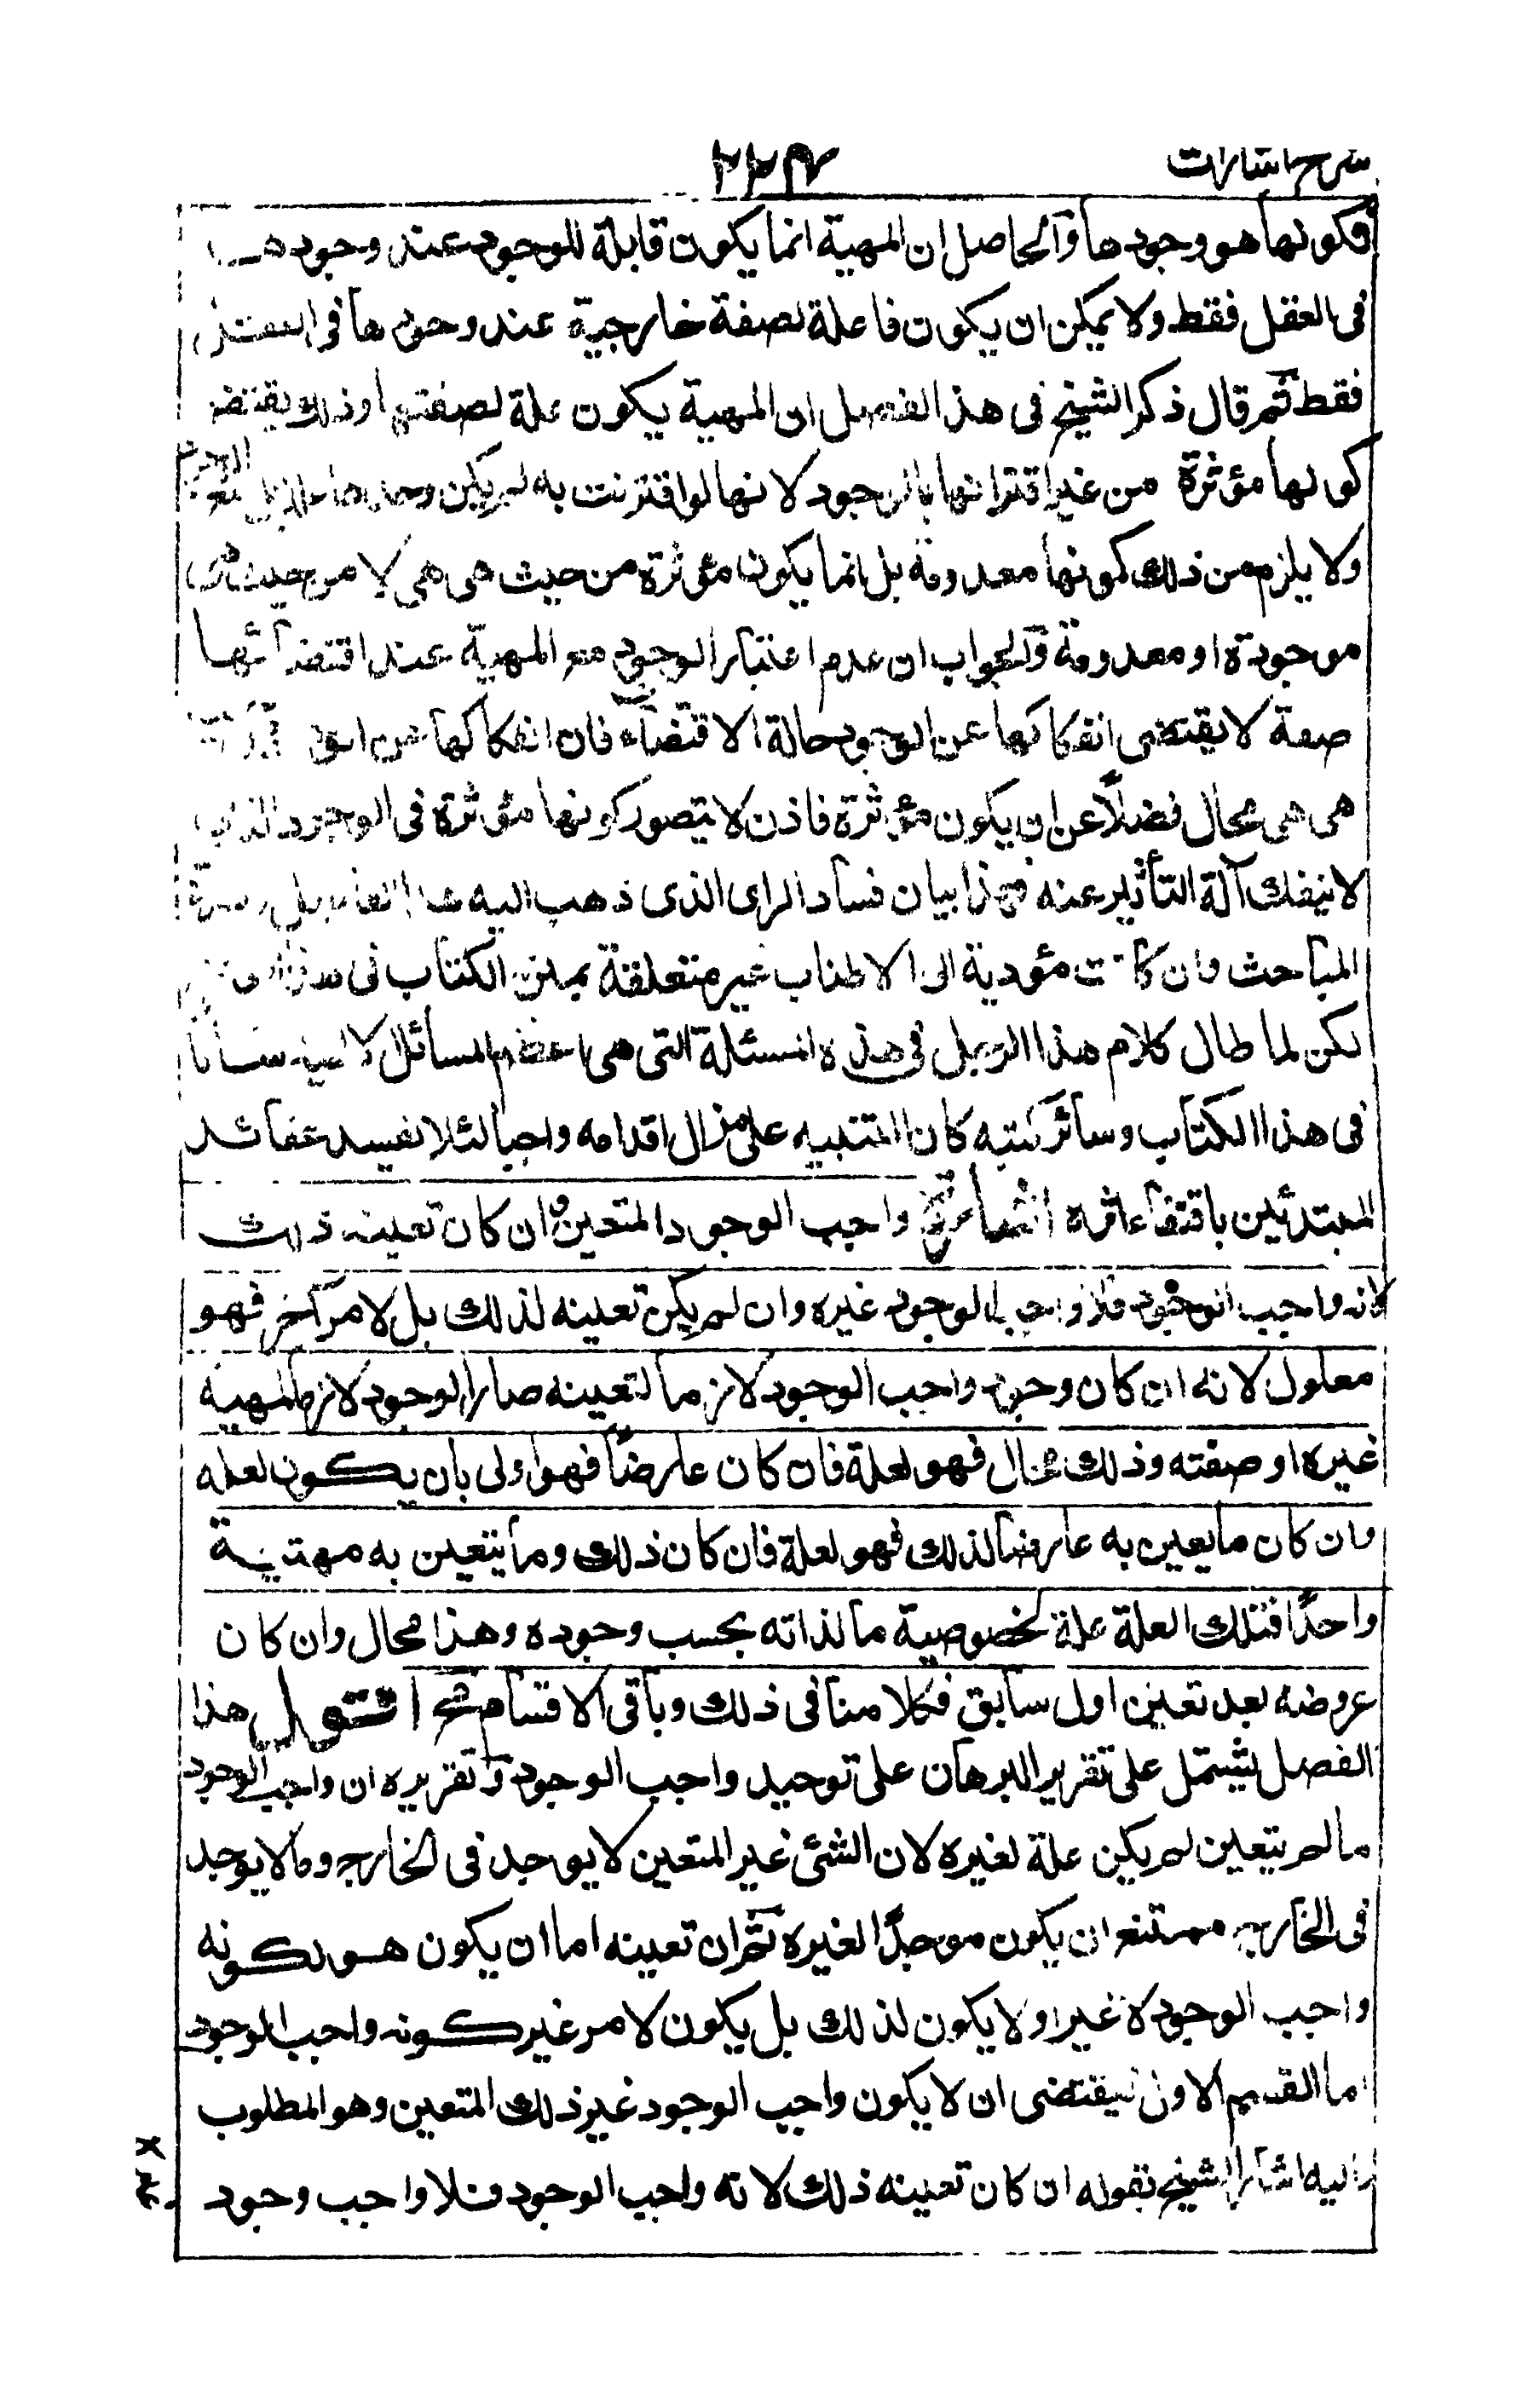 شرح اشارات ٢٢٣
فكونها هو وجودها وآلحاصل ان المهية انما يكون قابلة للوجود عند وجودها
فى العقل فقط ولا يمكن ان يكون فاعلة لصفة خارجية عند وجودها فى العقل
فقط ثم قال ذكر الشيخ فى هذا الفصل ان المهية يكون علة لصفتها وذلك يقتضى
كونها مؤثرة من غير اقترانها بالوجود لانها لو اقترنت به لم يكن وحدها
ولا يلزم من ذلك كونها معدومة بل انما يكون مؤثرة من حيث هى هى لا من حيث
موجودة او معدومة وآلجواب ان عدم اعتبار الوجود مع المهية عند اقتضائها
صفة لا يقتضى انفكاكها عن الوجود حالة الاقتضاء فان انفكاكها عن الوجود
هى هى محال فضلاً عن ان يكون مؤثرة فاذن لا يتصور كونها مؤثرة فى الوجود الذى
لا ينفك آلة التأثير عنه فهذا بيان فساد الراى الذى ذهب اليه هذا الفاضل
المباحث وان كانت مؤدية الى الاطناب غير متعلقة بمتن الكتاب فى
لكن لما طال كلام هذا الرجل فى هذه المسئلة التى هى اعظم المسائل الالهية
فى هذا الكتاب وسائر كتبه كان التنبيه على مزال اقدامه واجبا لئلا يفسد عقائد
المبتدئين باقتفاء اثره اشارة واجب الوجود المتعين ان كان تعينه ذلك
لانه واجب الوجود فلا واجب الوجود غيره وان لم يكن تعينه لذلك بل لامر آخر فهو
معلول لانه ان كان وجود واجب الوجود لازما لتعينه صار الوجود لازما لمهية
غيره او صفته وذلك محال فهو لعلة فان كان عارضاً فهو اولى بان يكون لعله
وان كان ما يعين به عارضا لذلك فهو لعلة فان كان ذلك وما يتعين به مهتية
واحدًا فتلك العلة علة لخصوصية ما لذاته بحسب وجوده وهذا محال وان كان
عروضه بعد تعين اول سابق فكلامنا فى ذلك وباقى الاقسام مح اقول هذا
الفصل يشتمل على تقرير البرهان على توحيد واجب الوجود وتقريره ان واجب الوجود
ما لم يتعين لم يكن علة لغيره لان الشئ غير المتعين لا يوجد فى الخارج وما لا يوجد
فى الخارج ممتنع ان يكون موجدًا لغيره ثم ان تعينه اما ان يكون هو لكونه
واجب الوجود لا غير او لا يكون لذلك بل يكون لامر غير كونه واجب الوجود
اما القسم الاول فيقتضى ان لا يكون واجب الوجود غير ذلك المتعين وهو المطلوب
واليه اشار الشيخ بقوله ان كان تعينه ذلك لانه واجب الوجود فلا واجب وجود